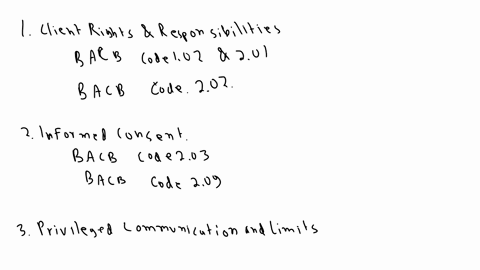 1. Client Rights & Responsibilities
BACB Code 1.02 & 2.01
BACB Code. 2.02.
2. Informed Consent.
BACB Code 2.03
BACB Code 2.09
3. Privileged Communication and Limits